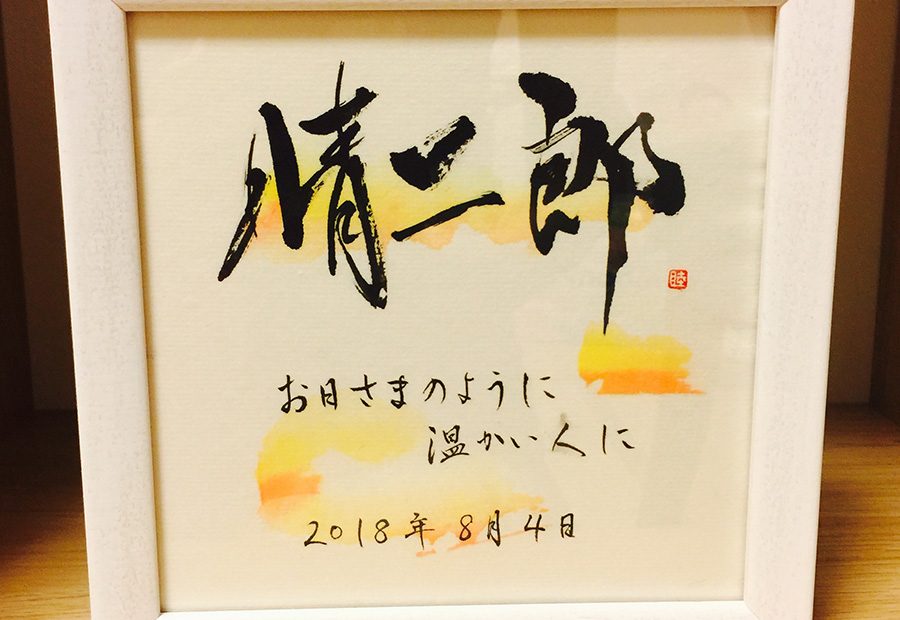 晴二郎
睦
お日さまのように
温かい人に
2018年 8月4日